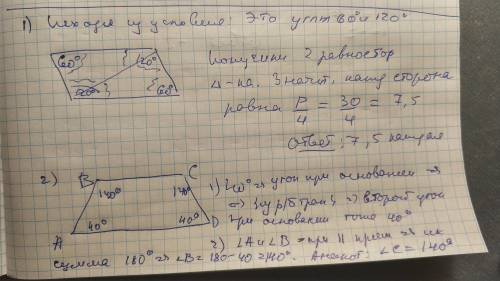 1) Исходя из условия: Это углы 60° и 120°
60° 120°
120° 60°
Получили 2 равностор
Δ-ка. Значит, кажд сторона
равна P/4 = 30/4 = 7,5
Ответ: 7,5 каждая
2) B C
140° 140°
40° 40°
A D
1) ∠40° ⇒ угол при основании ⇒
⇒ ⇒ второй угол
при основании тоже 40°
2) ∠A и ∠B – при || прям ⇒ их
сумма 180° ⇒ ∠B = 180-40 = 140°. Аналог: ∠C = 140°